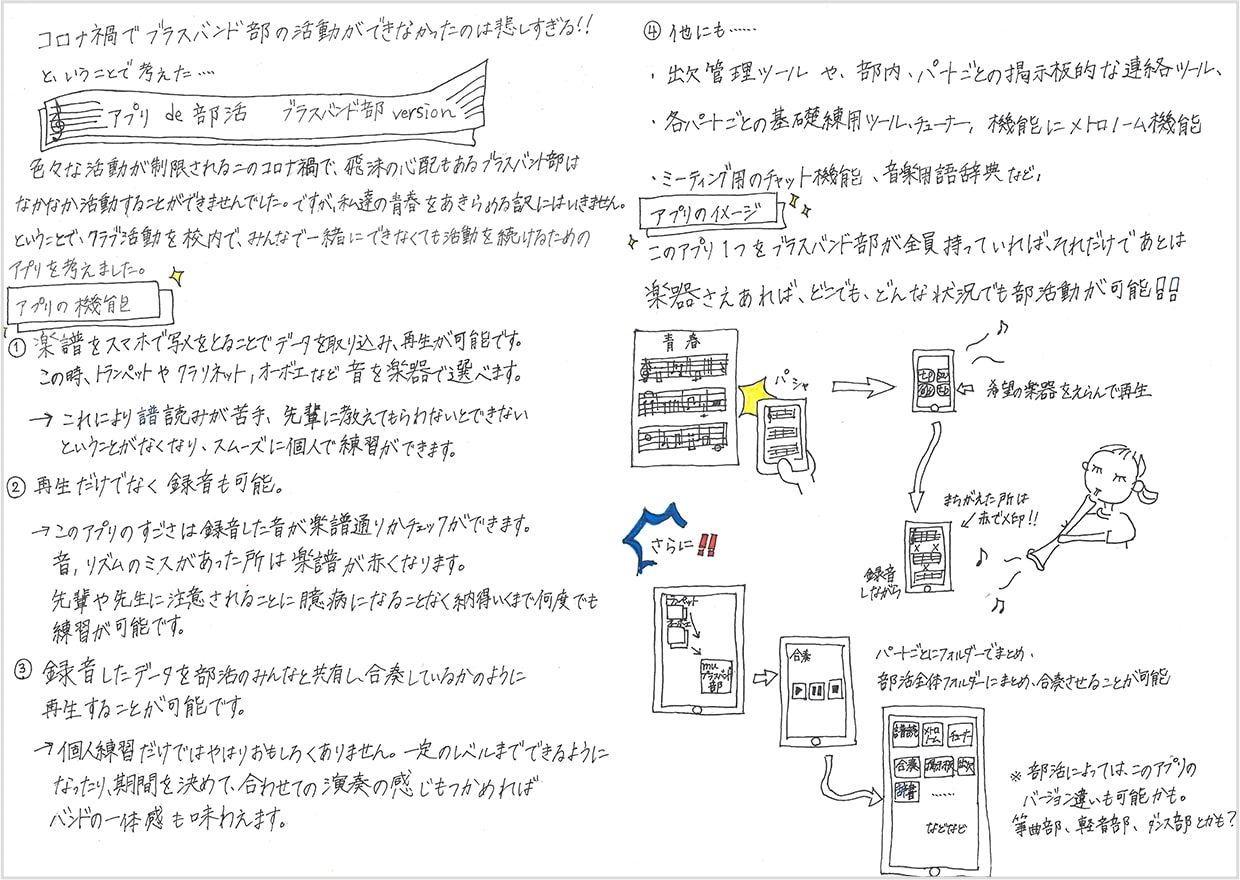 コロナ禍でブラスバンド部の活動ができなかったのは悲しすぎる!!
ということで考えた…
アプリ de 部活 ブラスバンド部 version
色々な活動が制限されるこのコロナ禍で、飛沫の心配もあるブラスバンド部は
なかなか活動することができませんでした。ですが、私達の青春をあきらめる訳にはいきません。
ということで、クラブ活動を校内で、みんなで一緒にできなくても活動を続けるための
アプリを考えました。
アプリの機能
① 楽譜をスマホで写メをとることでデータを取り込み、再生が可能です。
この時、トランペットやクラリネット,オーボエなど音を楽器で選べます。
→ これにより譜読みが苦手、先輩に教えてもらわないとできない
ということがなくなり、スムーズに個人で練習ができます。
② 再生だけでなく録音も可能。
→このアプリのすごさは録音した音が楽譜通りかチェックができます。
音,リズムのミスがあった所は楽譜が赤くなります。
先輩や先生に注意されることに臆病になることなく納得いくまで何度でも
練習が可能です。
③ 録音したデータを部活のみんなと共有し、合奏しているかのように
再生することが可能です。
→個人練習だけではやはりおもしろくありません。一定のレベルまでできるように
なったり、期間を決めて、合わせての演奏の感じもつかめれば
バンドの一体感も味わえます。
④ 他にも……
・出欠管理ツールや、部内、パートごとの掲示板的な連絡ツール、
・各パートごとの基礎練用ツール、チューナー, 機能にメトロノーム機能
・ミーティング用のチャット機能、音楽用語辞典など,
アプリのイメージ
このアプリ1つをブラスバンド部が全員持っていれば、それだけであとは
楽器さえあれば、どこでも、どんな状況でも部活動が可能!!
青春
パシャ
希望の楽器をえらんで再生
まちがえた所は
赤で×印!!
録音
しながら
さらに!!
トランペット
mu
ブラスバンド
部
合奏
パートごとにフォルダーでまとめ、
部活全体フォルダーにまとめ、合奏させることが可能
譜読 メトロノーム チューナー
合奏 掲示板 出欠
辞書 ……
などなど
※部活によっては、このアプリの
バージョン違いも可能かも。
箏曲部、軽音部、ダンス部とかも?